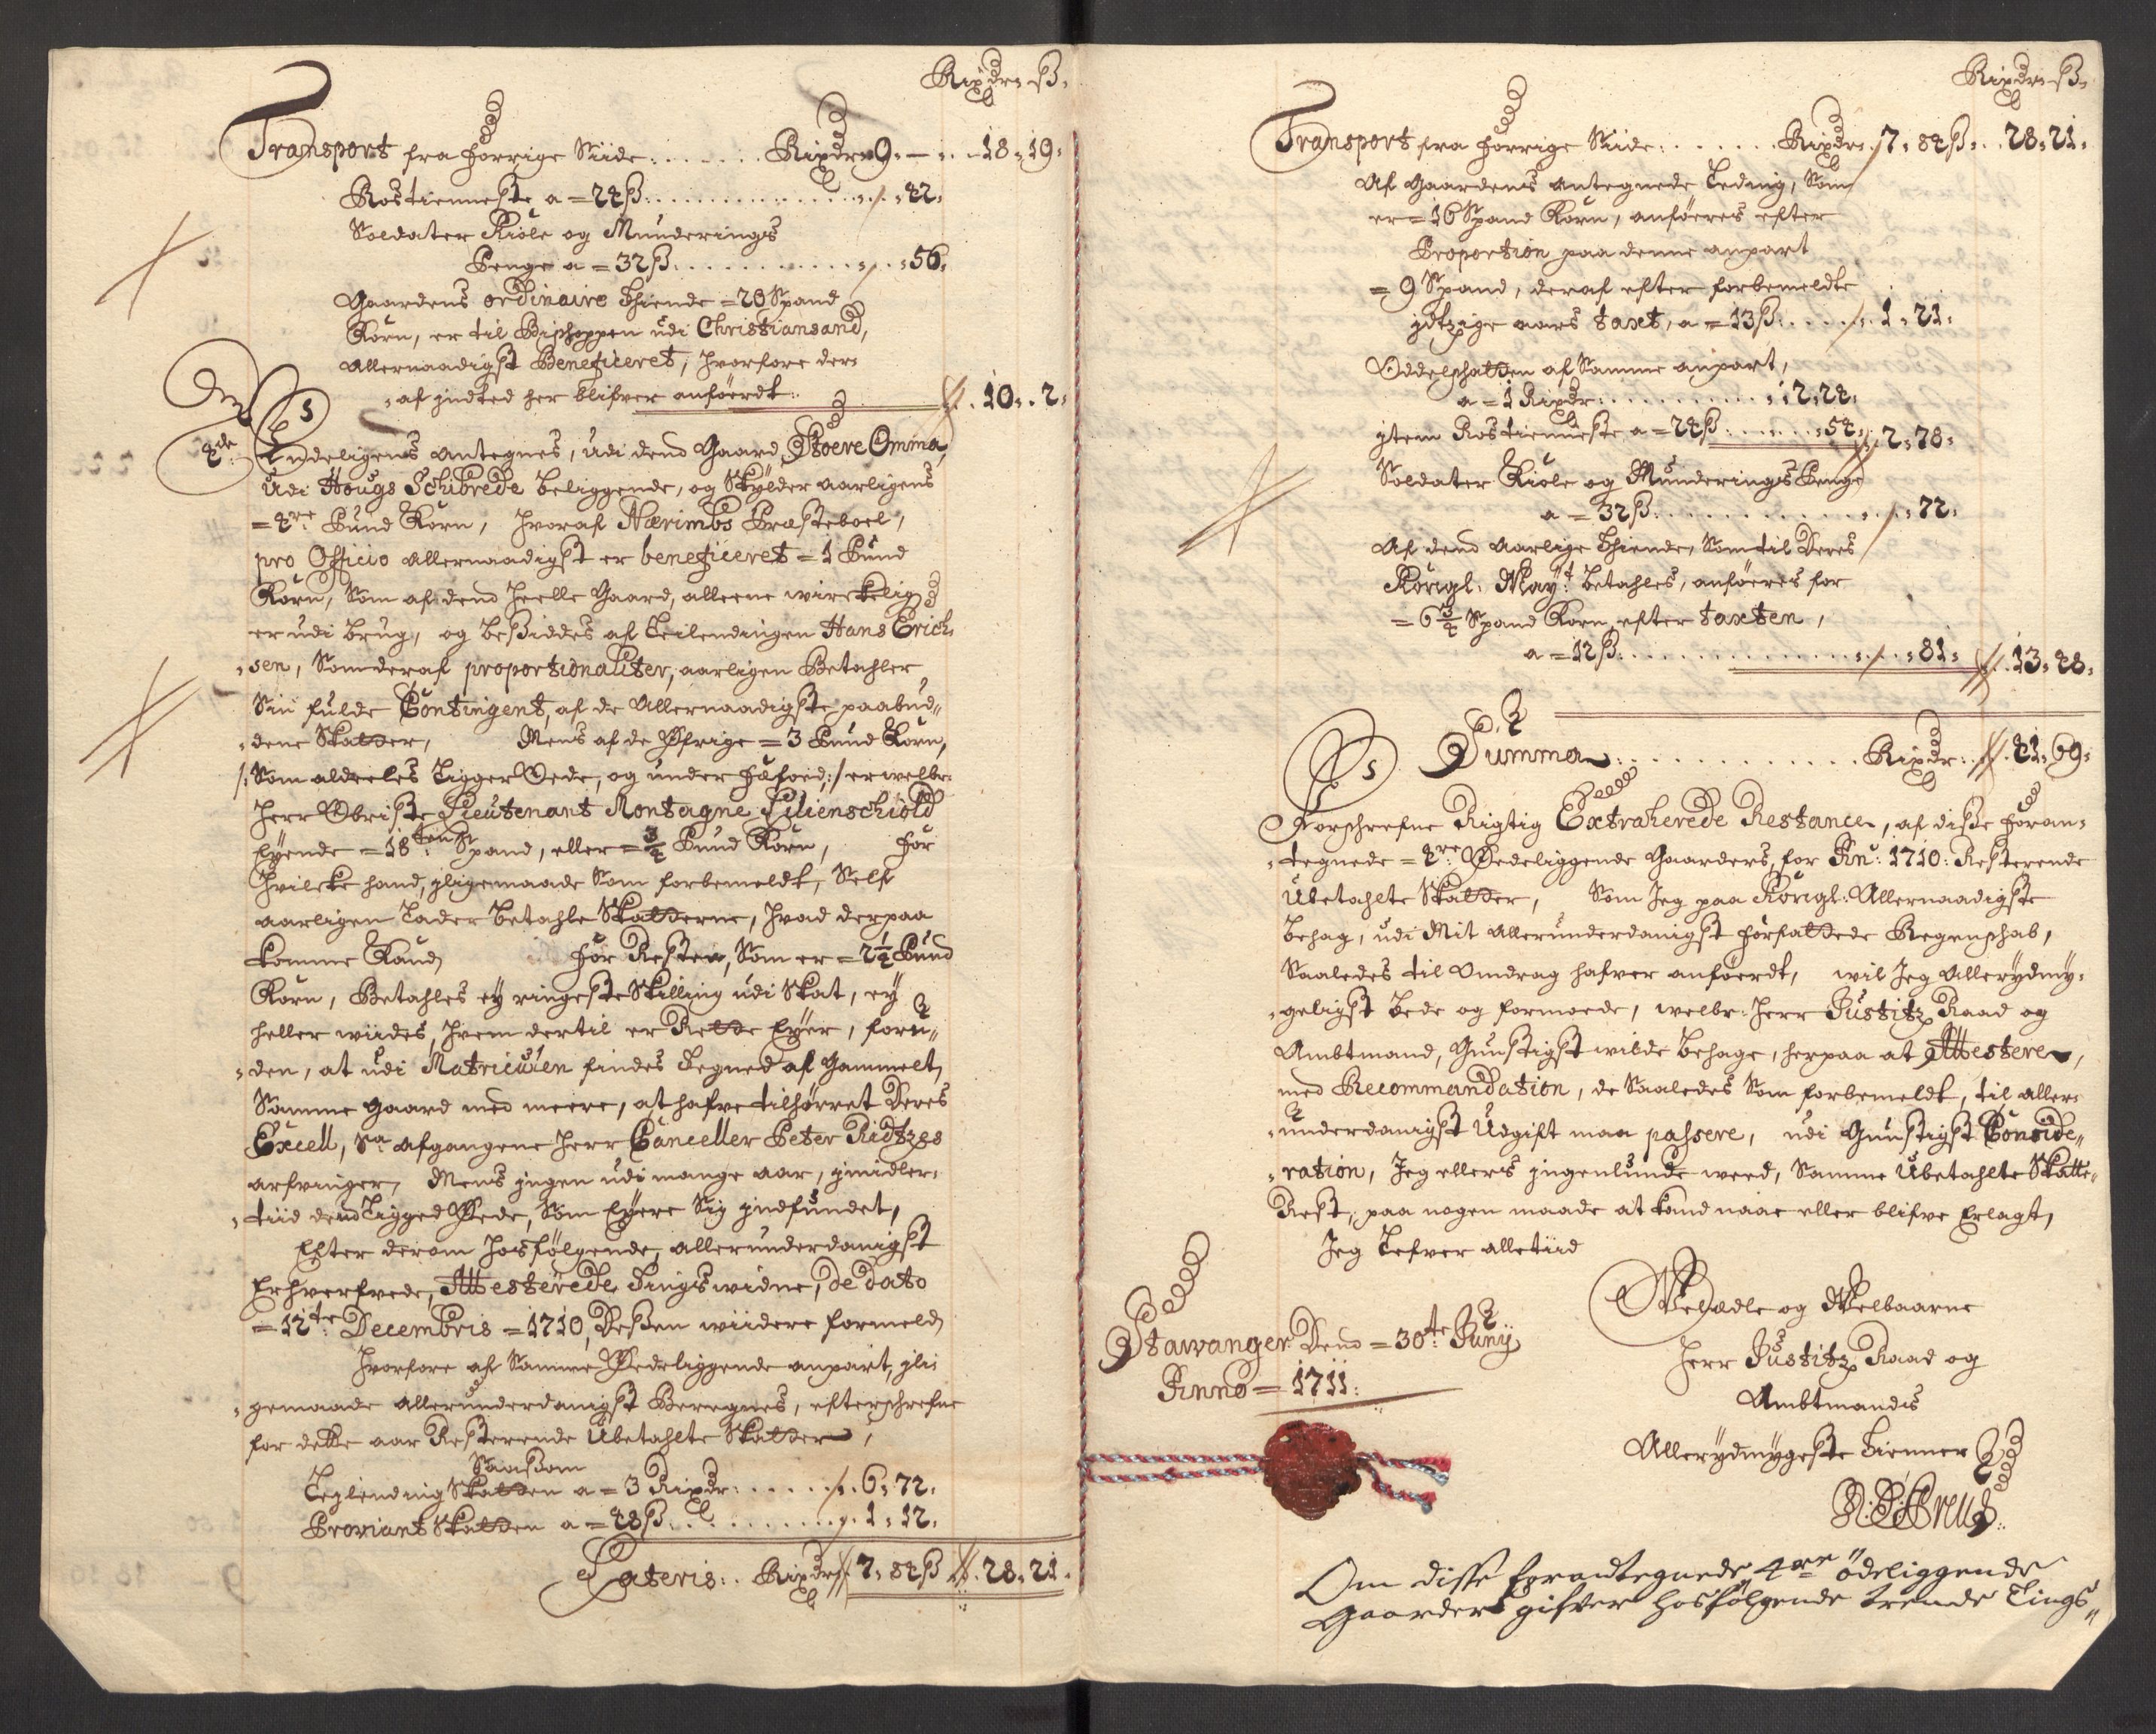 Rixdr: ß.
Transport fra forrige Siide: . . . . . . Rixdr 9. — . . 18. 19.
Rostienneste a = 24 ß. . . . . . . . . . . . . . . 42.
Soldater Kiole og Munderings
Penge a = 32 ß. . . . . . . . . . . . . . 56.
Gaardens ordinaire Thiende = 20 Spand
Korn, er til Bishoppen udi Christiansand,
Allernaadigst Beneficeret, hvorfore der-
af indted her blifver anföerdt: . . 10. . 2.
4de Endeligens antegnes, udi dend Gaard Stoere Omma,
Udi Hougs Schibrede beliggende, og Skylder aarligens
= 4re Pund Korn, hvoraf Nærimbs Præsteboel,
pro Officio allernaadigst er beneficeret = 1 Pund
Korn, Som af dend heelle Gaard, alleene wirckelig
er udi brug, og besiddes af Leilendingen Hans Erich-
sen, Som deraf proportionaliter, aarligen Betahler
Sin fulde Contingent, af de Allernaadigste paabud-
dene Skatter, Mens af de Øfrige = 3 Pund Korn,
/: Som aldeeles Ligger Øede, og under Fæfoed :/ er welbr:
Herr Obriste Lieutenant Montagne Lilienschiold
Eyende = 18ten Spand, eller = 3/4 Pund Korn, for
hvilcke hand, jligemaade Som forbemeldt, Self
aarligen Lader betahle Skatterne, hvad derpaa
komme Kand, for Resten, Som er = 2 1/4 Pund
Korn, Betahles ey ringeste Skilling udi Skat, ey
heller wiides, hvem dertil er Rette Eyer, foru-
den, at udi Matriculen findes Tegned af Gammelt,
Samme gaard med meere, at hafve tilhörret Deres
Excell, Sa: afgangene Herr Canceller Peter Ridtzes
arfvinger, Mens jngen udi mange aar, jmidler-
tiid dend Ligged Øede, Som Eyere Sig jndfundet,
Efter derom hosfölgende, allerunderdanigst
Erhverfvede, Attesterede Tingswidne, de dato
= 12te Decembris = 1710, Dessen wiidere formeld,
hvorfore af Samme Øedeliggende anpart, jli-
gemaade allerunderdanigst Beregnes, efterschrefne
for dette aar Resterende Ubetahlte Skatter,
Saasom
Leylending Skatten a = 3 Rixdr: . . . . . . 6. 72.
Proviant Skatten a = 48 ß. . . . . . . . . 1. 12.
Lateris: . . Rixdr 7. 84 ß . 28. 21.
Rixdr: ß.
Transport fra forrige Siide: . . . . . . Rixdr. 7. 84 ß. . . 28. 21.
Af Gaardens antegnede Leding, Som
er = 16 Spand Korn, anföeres efter
Proportion paa denne anpart
= 9 Spand, deraf efter forbemeldte
jdtzige aars taxt, a = 13 ß. . . . . . 1. 21.
Oddelshatten af Samme anpart,
a = 1 Rixdr: . . . . . . . . . . 2. 24.
jtem Rostienneste a = 24 ß. . . . . . 54. 2. 78.
Soldater Kiole og Munderings Penge
a = 32 ß. . . . . . . . . . . . . . 72.
Af dend aarlige Thiende, Som til Deres
Kongl: Mayt: betahles, anföeres for
= 6 3/4 Spand Korn, efter taxten,
a = 12 ß. . . . . . . . . . . . . . 81. . 13. 48.
Summa . . . . . . . . . . . Rixdr: . . 41. 69.
Forschrefne Rigtig Extraherede Restance, af disse foran-
tegnede = 4re Øedeliggende Gaarders, for Ano: 1710: Resterende
Ubetahlte Skatter, Som Jeg paa Kongl: Allernaadigste
behag, udi Mit allerunderdanigst forfattede Regenschab,
Saaledes til Omdrag hafver anföerdt, wil Jeg Allerydmy-
geligst bede og formoede, welbr: Herr Justitz Raad og
Ambtmand, Gunstigst wilde behage, herpaa at Attestere,
med Recommandation, de Saaledes Som forbemeldt, til aller-
underdanigst Udgift maa passere, udi Gunstigst Conside-
ration, Jeg ellers jngenlunde weed, Samme Ubetahlte Skatte-
Rest, paa nogen maade at kand naae eller blifve Erlagt,
Jeg Lefver alletiid
Welædle og Welbaarne
Herr Justitz Raad og
Ambtmands
Allerydmygeste Tienner
Stawanger Dend = 30te Juny
Anno = 1711:
Om disse forantegnede 4re ödeliggende
Gaarder gifver hosfölgende trende Tings-